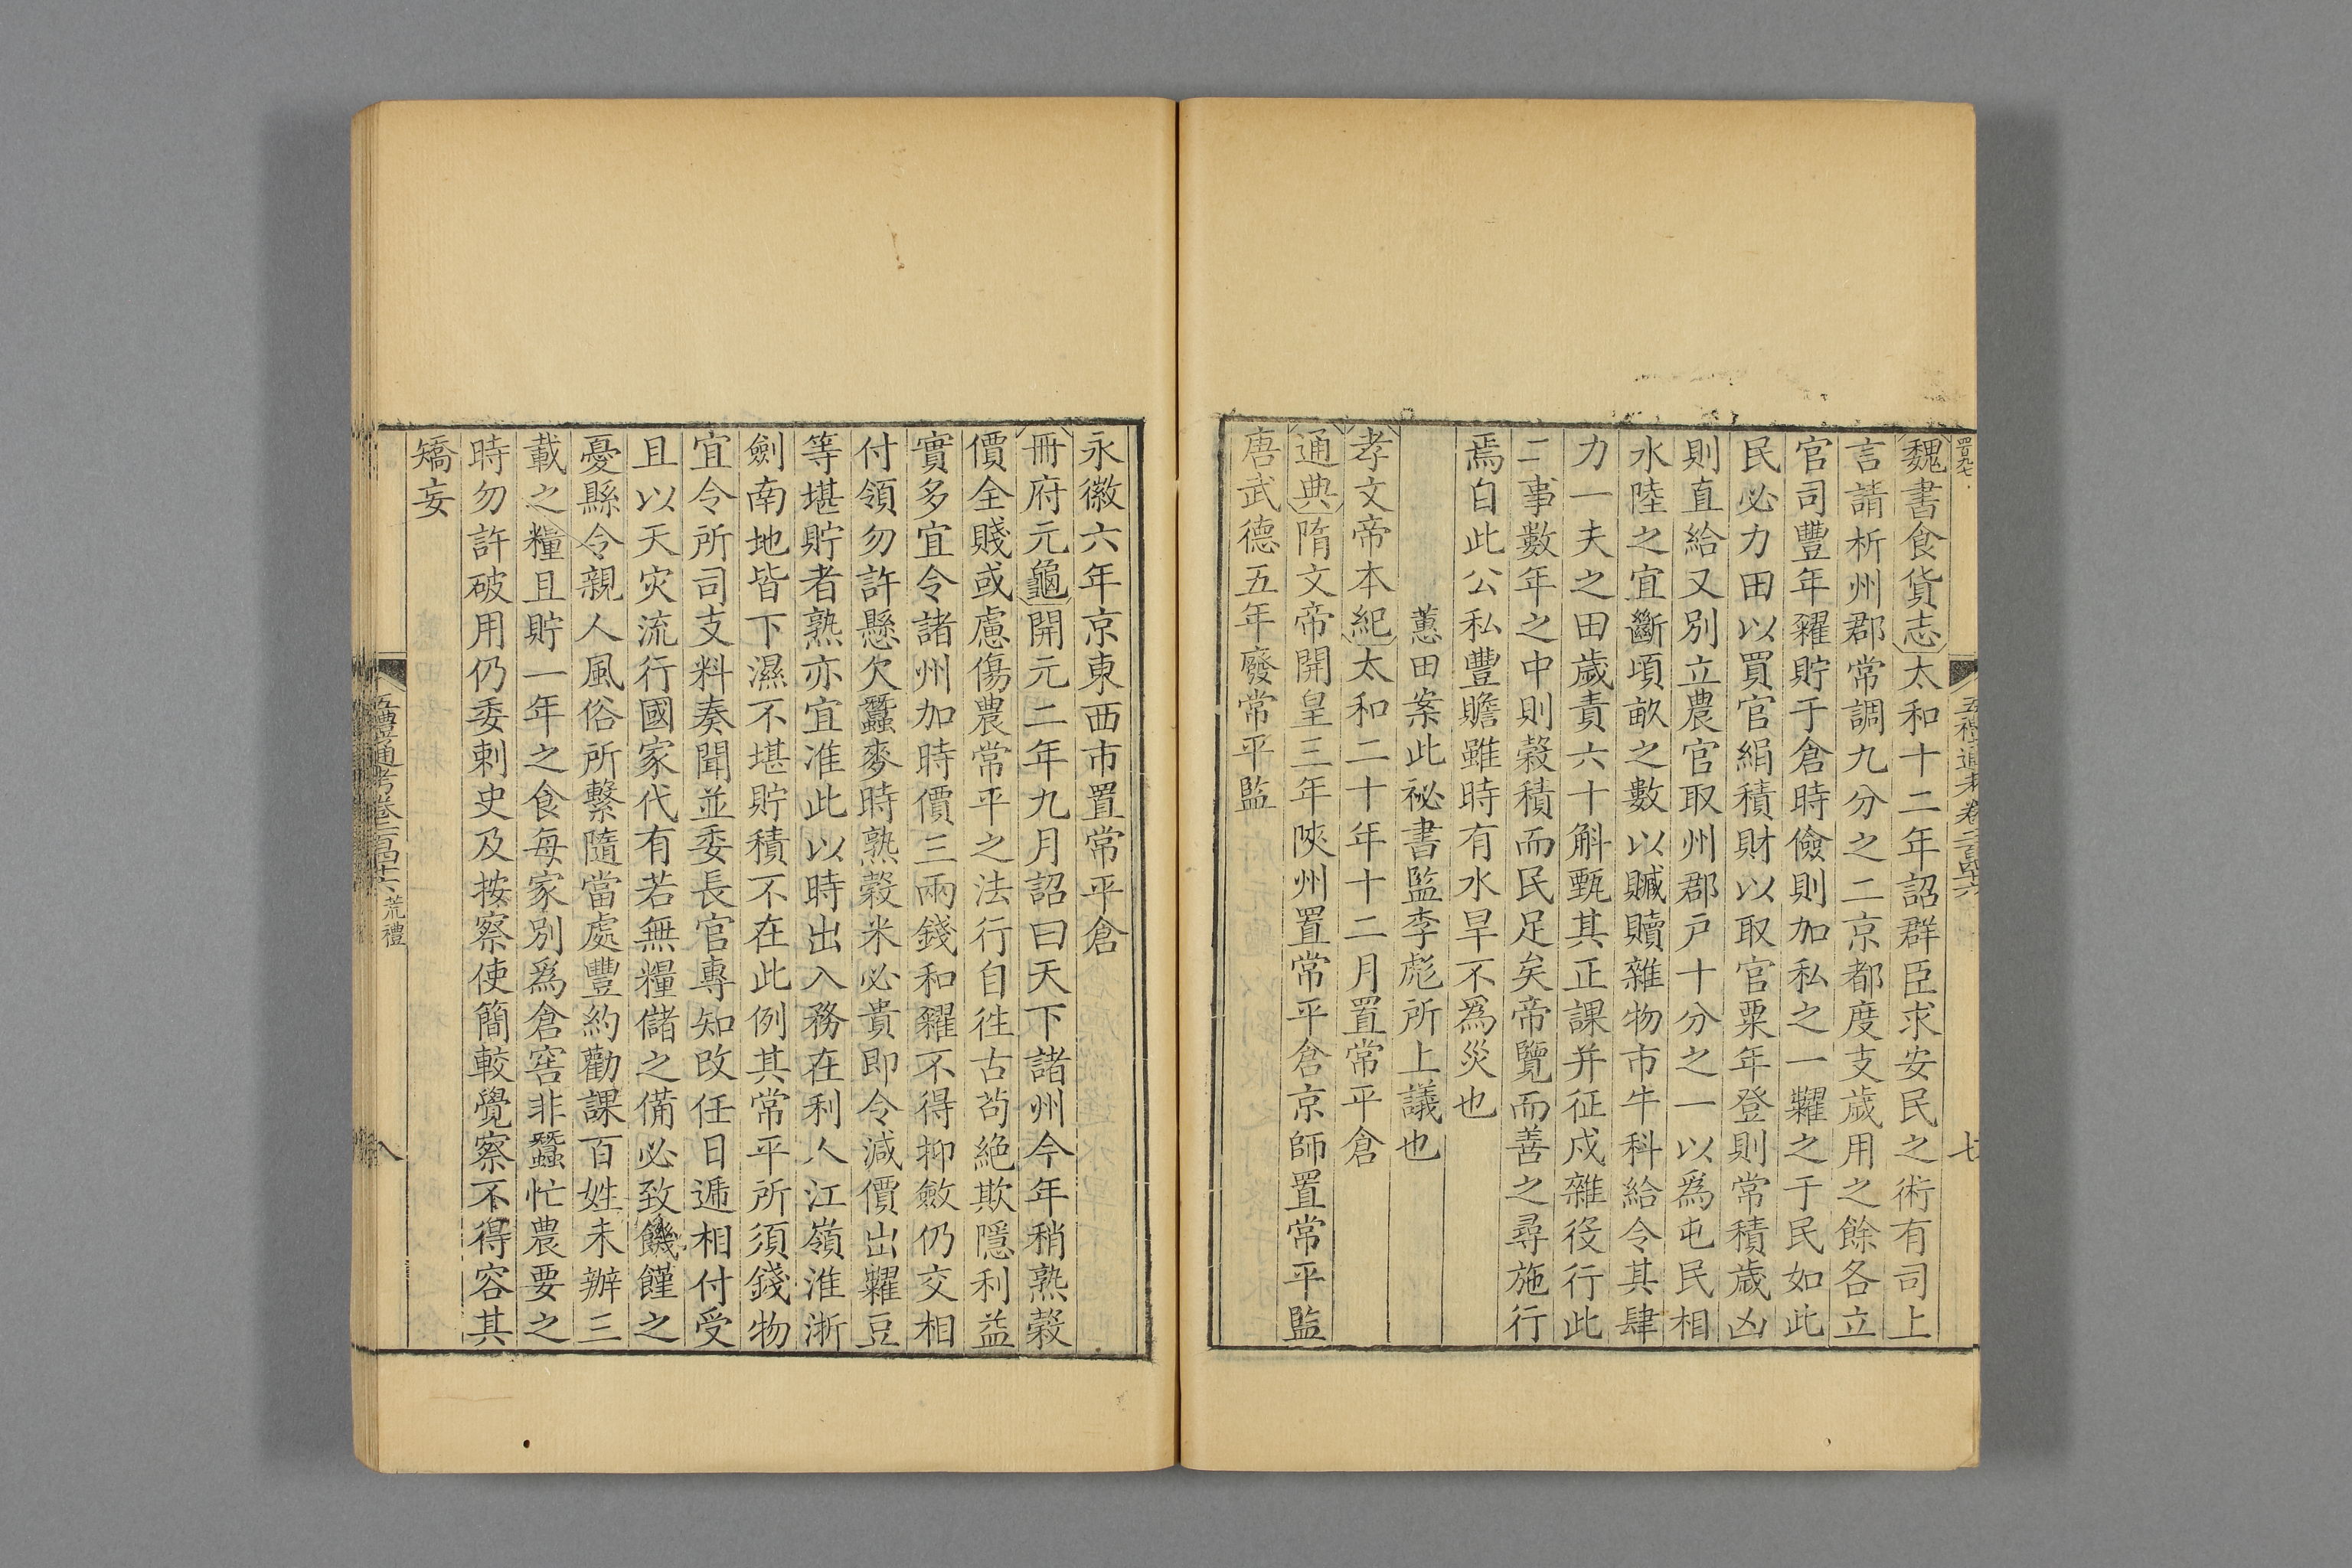 五禮通考卷二百四十六
七
魏書食貨志太和十二年詔群臣求安民之術有司上
言請析州郡常調九分之二京都度支歲用之餘各立
官司豐年糴貯于倉時儉則加私之一糶之于民如此
民必力田以買官絹積財以取官粟年登則常積歲凶
則直給又別立農官取州郡戶十分之一以爲屯民相
水陸之宜斷頃畝之數以贓贖雜物市牛科給令其肆
力一夫之田歲責六十斛甄其正課并征戍雜役行此
二事數年之中則穀積而民足矣帝覽而善之尋施行
焉自此公私豐贍雖時有水旱不爲災也
蕙田案此祕書監李彪所上議也
孝文帝本紀太和二十年十二月置常平倉
通典隋文帝開皇三年陝州置常平倉京師置常平監
唐武德五年廢常平監
永徽六年京東西市置常平倉
冊府元龜開元二年九月詔曰天下諸州今年稍熟穀
價全賤或慮傷農常平之法行自徃古茍絶欺隱利益
實多宜令諸州加時價三兩錢和糴不得抑斂仍交相
付領勿許懸欠蠶麥時熟穀米必貴即令減價出糶豆
等堪貯者熟亦宜准此以時出入務在利人江嶺淮浙
劍南地皆下濕不堪貯積不在此例其常平所須錢物
宜令所司支料奏聞並委長官專知改任日遞相付受
且以天灾流行國家代有若無糧儲之備必致饑饉之
憂縣令親人風俗所繫隨當處豐約勸課百姓未辦三
載之糧且貯一年之食每家別爲倉窖非蠶忙農要之
時勿許破用仍委刺史及按察使簡較覺察不得容其
矯妄
五禮通考卷二百四十六 荒禮
八